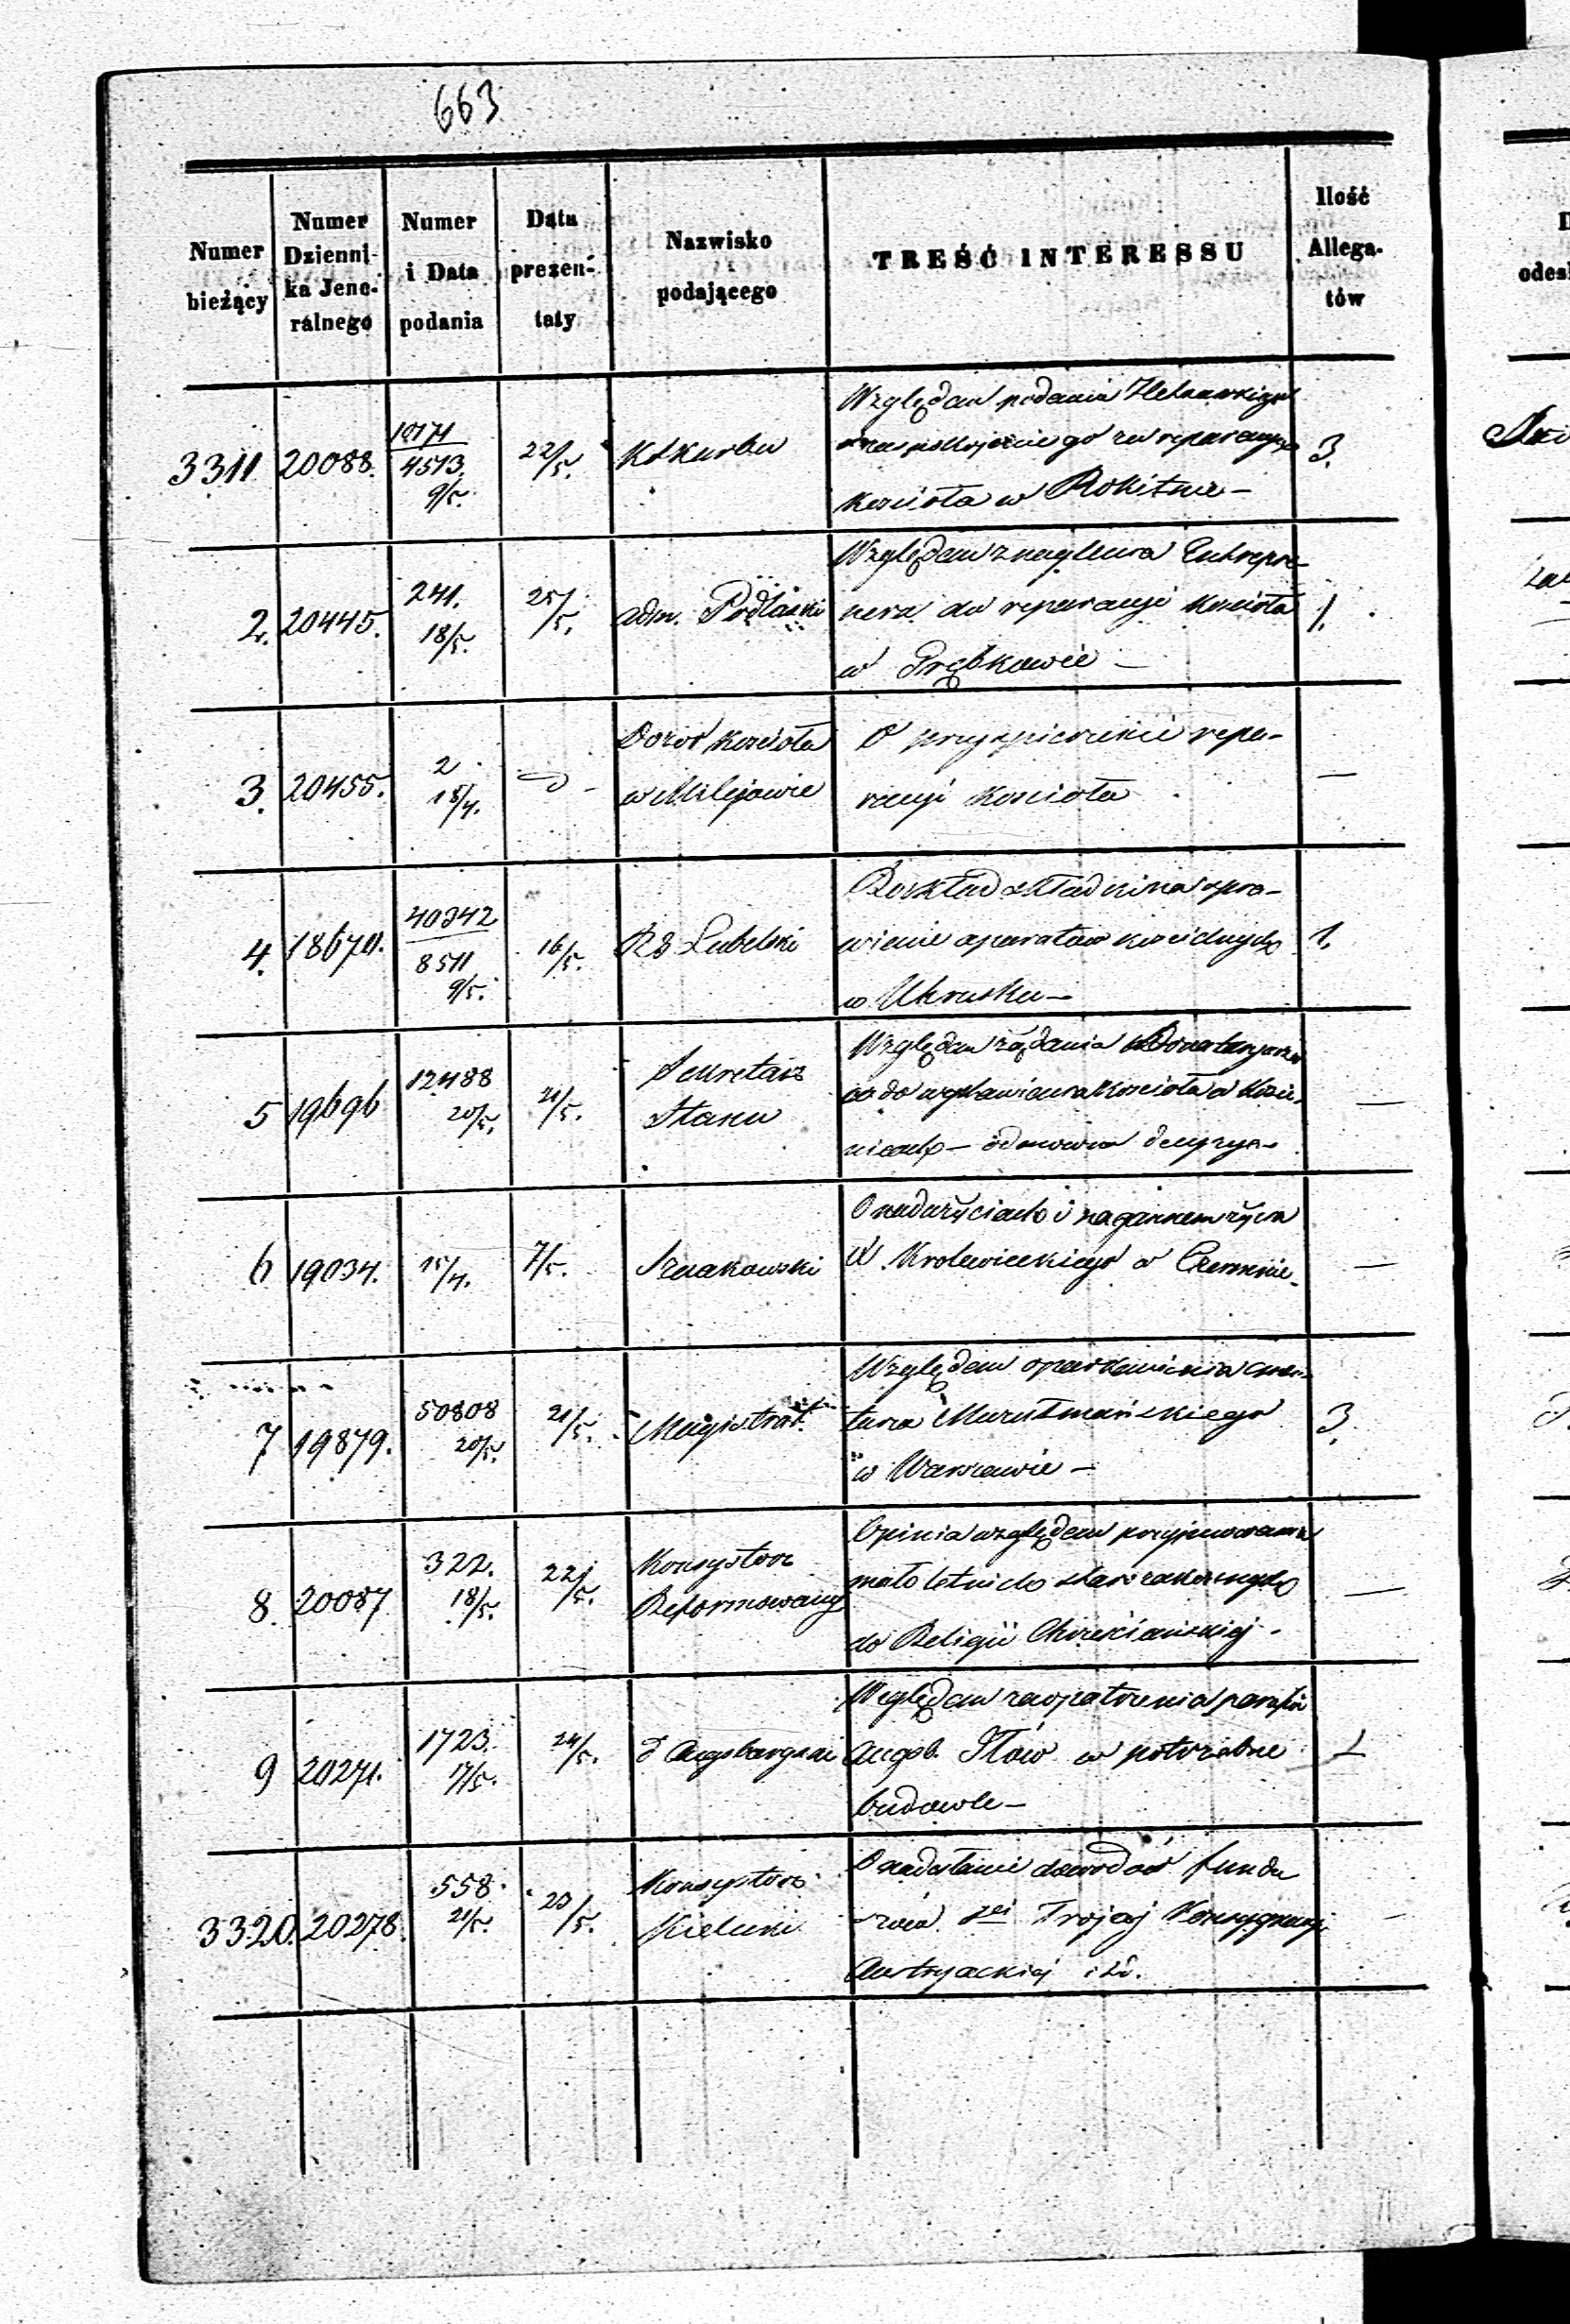 663
Numer bieżący
Numer Dzienni- ka Jene- ralnego
Numer i Data podania
Data prezen- taty
Nazwisko podającego
TREŚĆ INTERESSU
Ilość Allega- tów
3311 20088. 4513. 9/5. 22/5. 3.
Względem podania
kościoła w Rokitnie –
2. 20445. 241. 18/5. 25/5. Adm. Podlaski 1.
Względem znaglenia Entrepre-
nera do reparacyi kościoła
w Prębkowie –
3. 20455. 2 18/4. –
Dozór kościoła
w Milejowie
O przyspieszenie repa-
racyi kościoła
4. 18670. 40342 8511 9/5. 16/5. RG Lubelski 1.
Rozkład składki na spra-
wienie aparatów kościelnych
w Uhrusku –
5 19696 12488 20/5. 21/5. –
Sekretarz
Stanu
Względem żądania Donataryusza
co do wystawienia kościoła w
– odmowna decyzya –
6 19034. 15/4. 7/5. –
O nadużyciach i nagannem życiu
X. Krolewieckiego w Czermnie.
7 19879. 50808 20/5. 21/5. Magistrat. 3.
Względem oparkanienia cmen-
tarza Muzułmańskiego
w Warszawie –
8. 20087 322. 18/5. 22/5. –
Konsystorz
Reformowany
Opinia względem przyjmowania
małoletnich starozakonnych
do Religii Chrześciańskiej.
9 20271. 1723. 17/5. 24/5. d Augsburgski 1
Względem zaopatrzenia parafii
Augsb. Iłów w potrzebne
budowle –
3320. 20278. 558. 21/5. 23/5. –
Konsystorz
Kielecki
O nadesłanie dowodów fundu
Trojcy
Austryackiej itd.